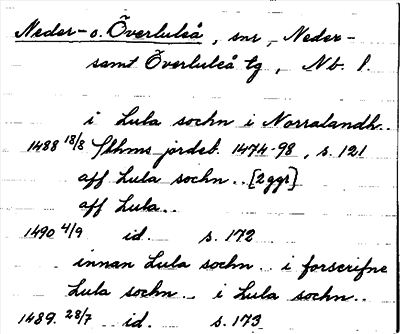 Neder- o. Överluleå, snr, Neder-
samt Överluleå tg, Nb. l.
i Lula sochn i Norralandh..
1488 18/8 Sthms jordeb. 1474-98, s. 121
aff Lula sochn.. [2 ggr]
aff Lula..
1490 4/9 id. s. 172
innan Lula sochn.. i forscrifne
Lula sochn.. i Lula sochn..
1489. 28/7 id. s. 173